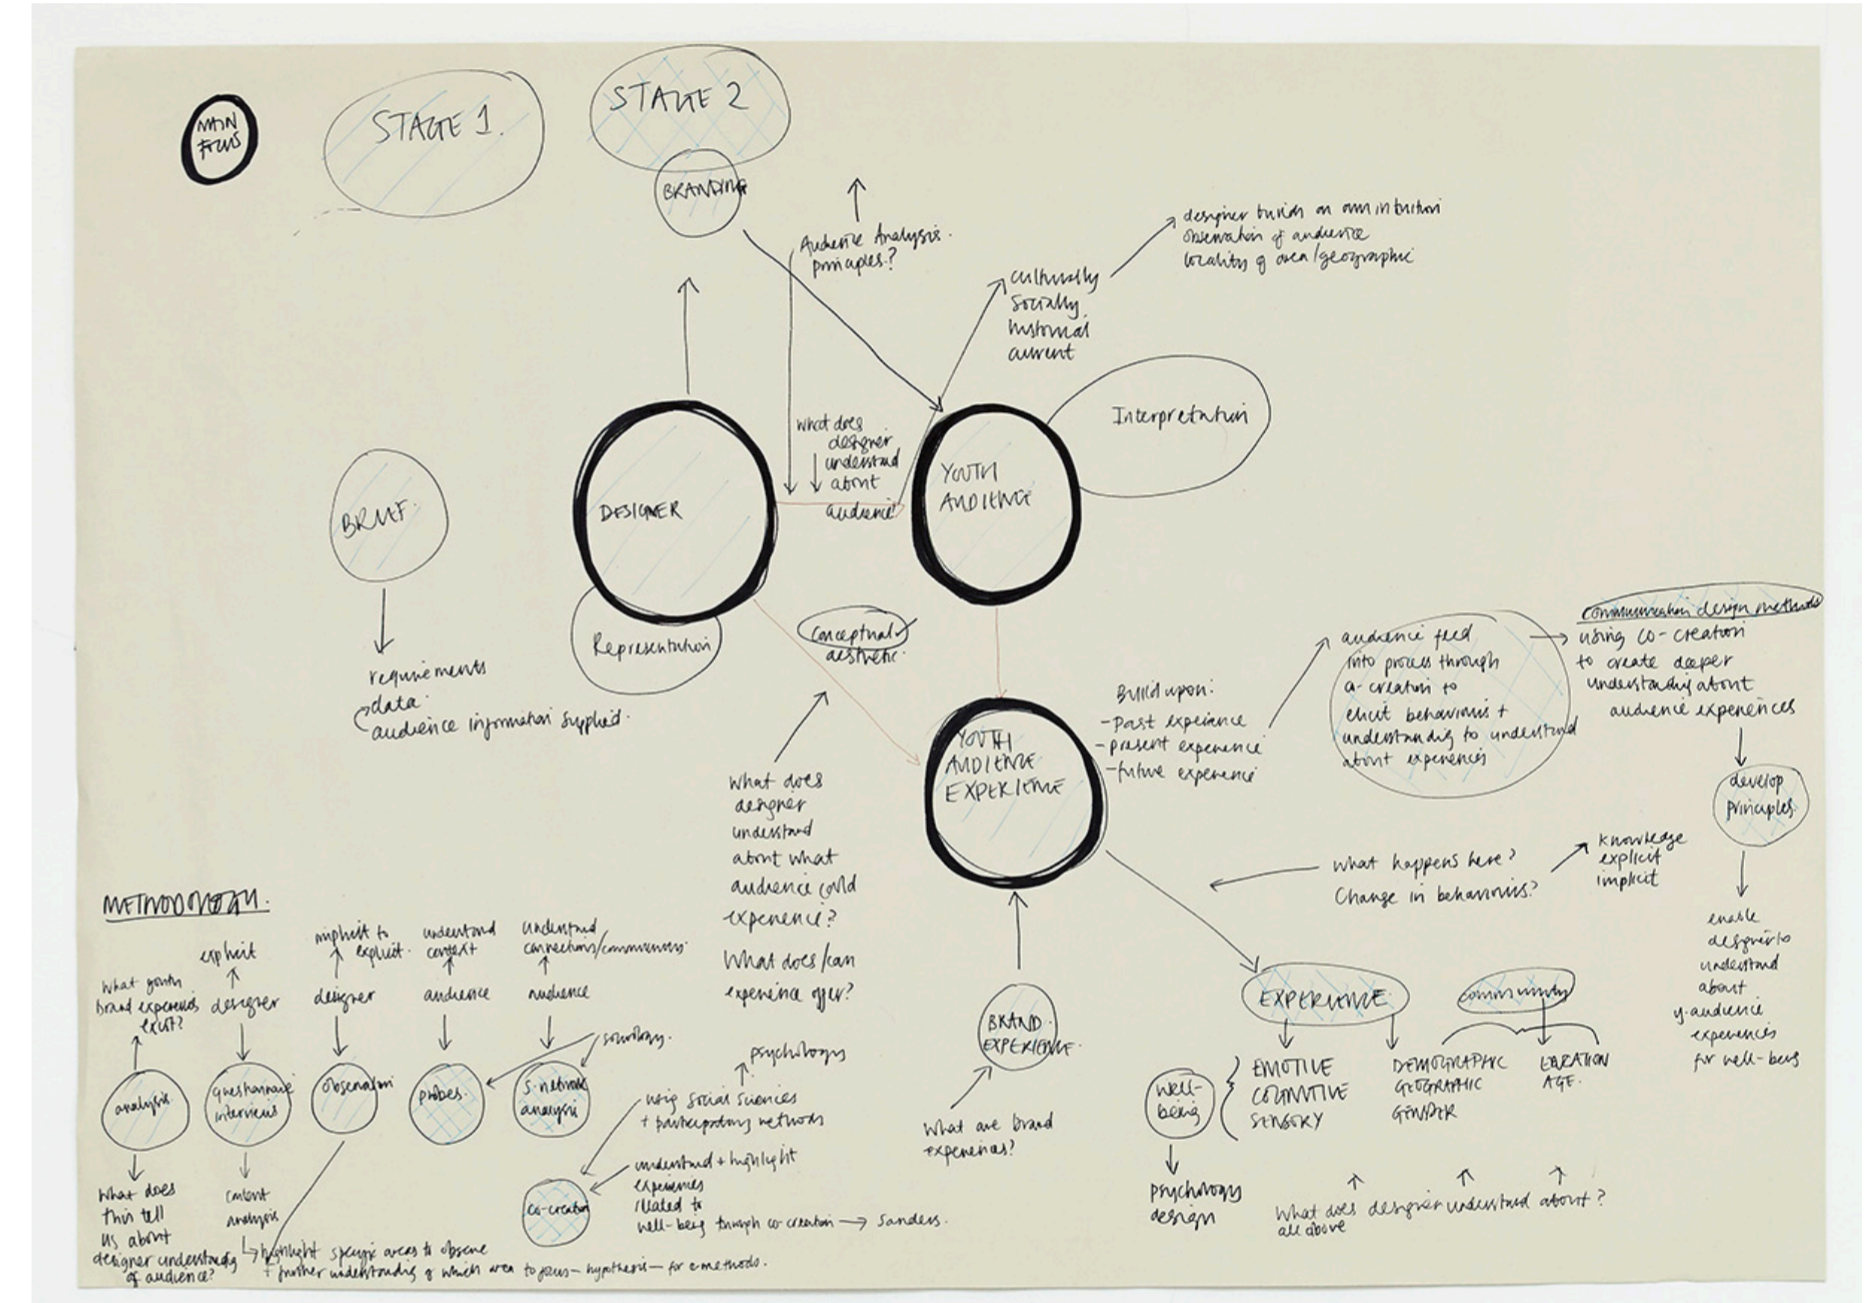 MAIN
FOCUS
STAGE 1.
STAGE 2
BRANDING
Audience Analysis.
principles?
designer builds on own intuition
observation of audience
locality of area/geographic
culturally
socially
historical
current
Interpretation
What does
designer
understand
about
audience?
YOUTH
AUDIENCE
DESIGNER
BRIEF.
Representation
requirements
data.
audience information supplied.
conceptual
aesthetic.
YOUTH
AUDIENCE
EXPERIENCE
Build upon:
- Past experience
- present experience
- future experience
audience feed
into process through
co-creation to
elicit behaviours +
understanding to understand
about experiences
communication design methods
using co-creation
to create deeper
understanding about
audience experiences
develop
principles.
enable
designer to
understand
about
y. audience
experiences
for well-being
What happens here?
Change in behaviours?
knowledge
explicit
implicit
What does
designer
understand
about what
audience could
experience?
What does/can
experience offer?
BRAND
EXPERIENCE.
What are brand
experiences?
EXPERIENCE.
community
well-
being
EMOTIVE
COGNITIVE
SENSORY
DEMOGRAPHIC
GEOGRAPHIC
GENDER
LOCATION
AGE.
psychology
design
What does designer understand about?
all above
METHODOLOGY.
What youth
brand experiences
exist?
explicit
designer
implicit to
explicit.
designer
understand
context
audience
understand
connections/communities.
audience
sociology.
psychology
analysis.
questionnaire
interviews
observation
probes.
S. network
analysis
using social sciences
+ participatory methods
understand + highlight
experiences
related to
well-being through co-creation → Sanders.
co-creation
What does
this tell
us about
designer understanding
of audience?
content
analysis
highlight specific areas to observe
+ further understanding of which area to focus - hypothesis - for c methods.